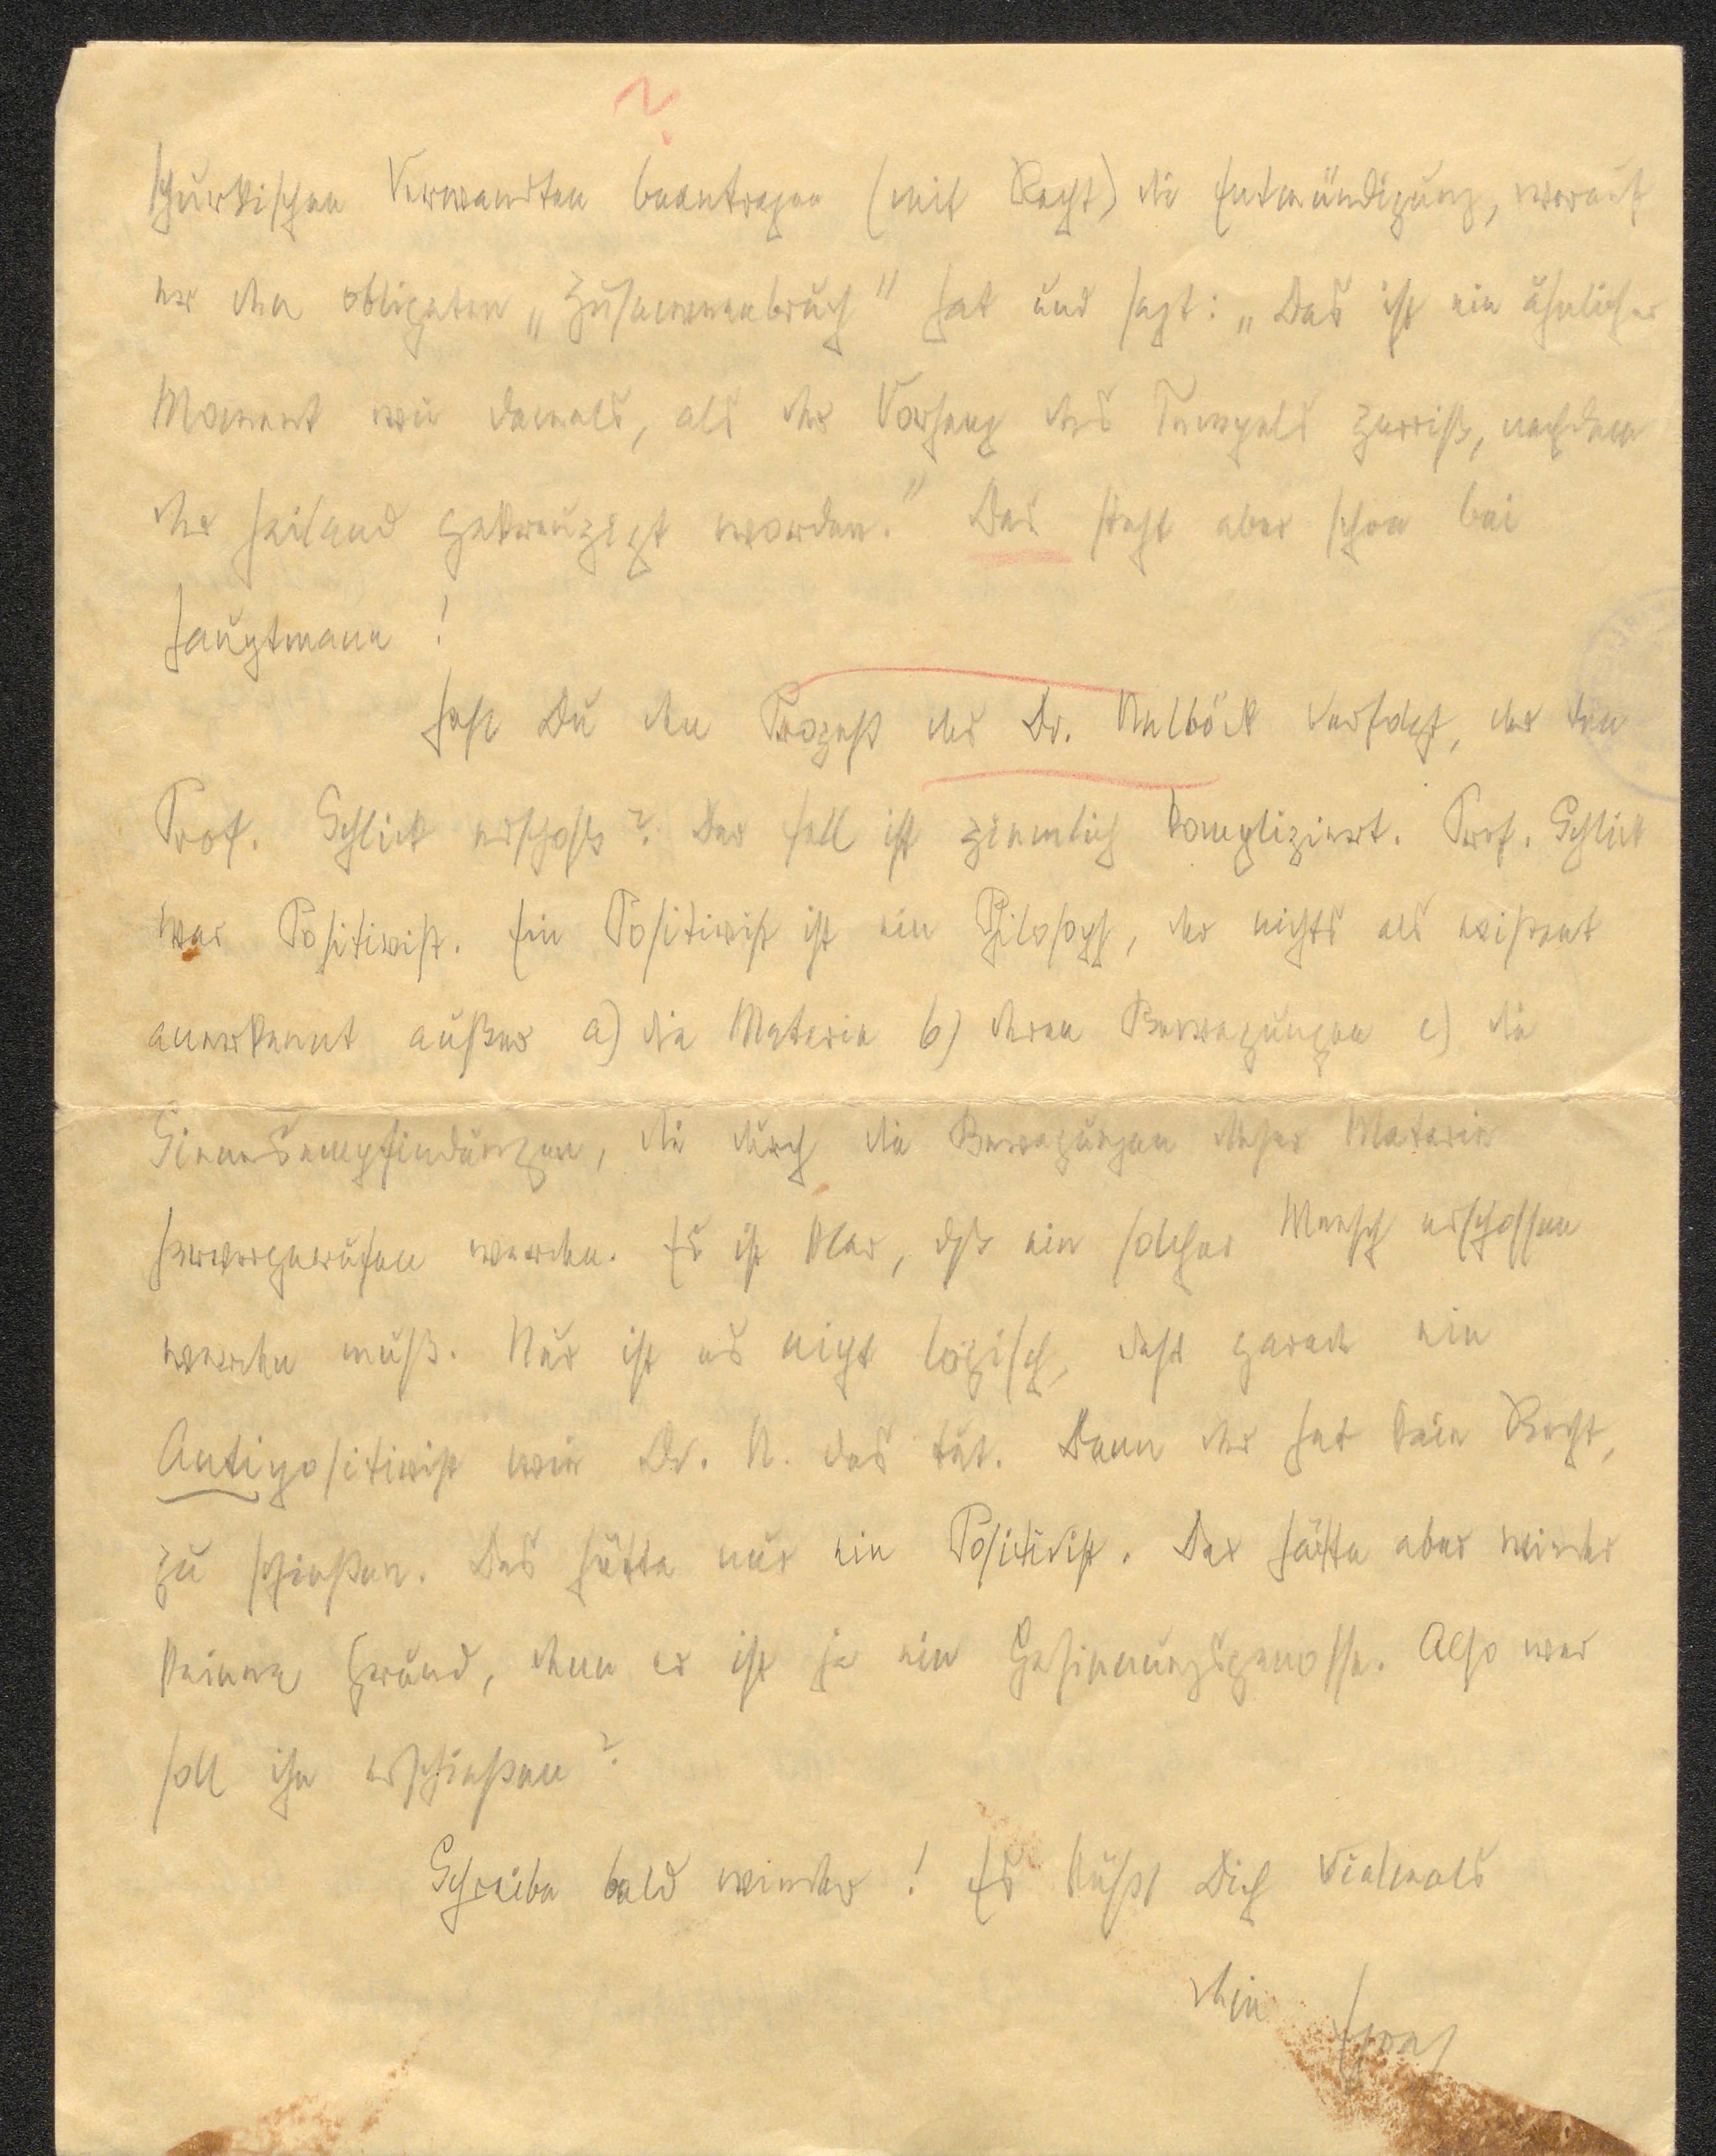 schurkischen Verwandten beantragen (mit Recht) die Entmündigung, worauf
er den obligaten „Zusammenbruch" hat und sagt: „Das ist ein ähnlicher
Moment wie damals, als der Vorhang des Tempels zerriß, nachdem
der Heiland gekreuzigt worden." Das steht aber schon bei
Hauptmann!
Hast Du den Prozeß des Dr. Nelböck verfolgt, der den
Prof. Schlick erschoß? Der Fall ist ziemlich kompliziert. Prof. Schlick
war Positivist. Ein Positivist ist ein Philosoph, der nichts als existent
anerkennt außer a) die Materie b) deren Bewegungen c) die
Sinnesempfindungen, die durch die Bewegungen dieser Materie
hervorgerufen werden. Es ist klar, daß ein solcher Mensch erschossen
werden muß. Nur ist es nicht logisch, daß gerade ein
Antipositivist wie Dr. N. das tut. Denn der hat kein Recht,
zu schießen. Das hätte nur ein Positivist. Der hätte aber wieder
keinen Grund, denn er ist ja ein Gesinnungsgenosse. Also wer
soll ihn erschießen?
Schreibe bald wieder! Es küßt Dich vielmals
Dein